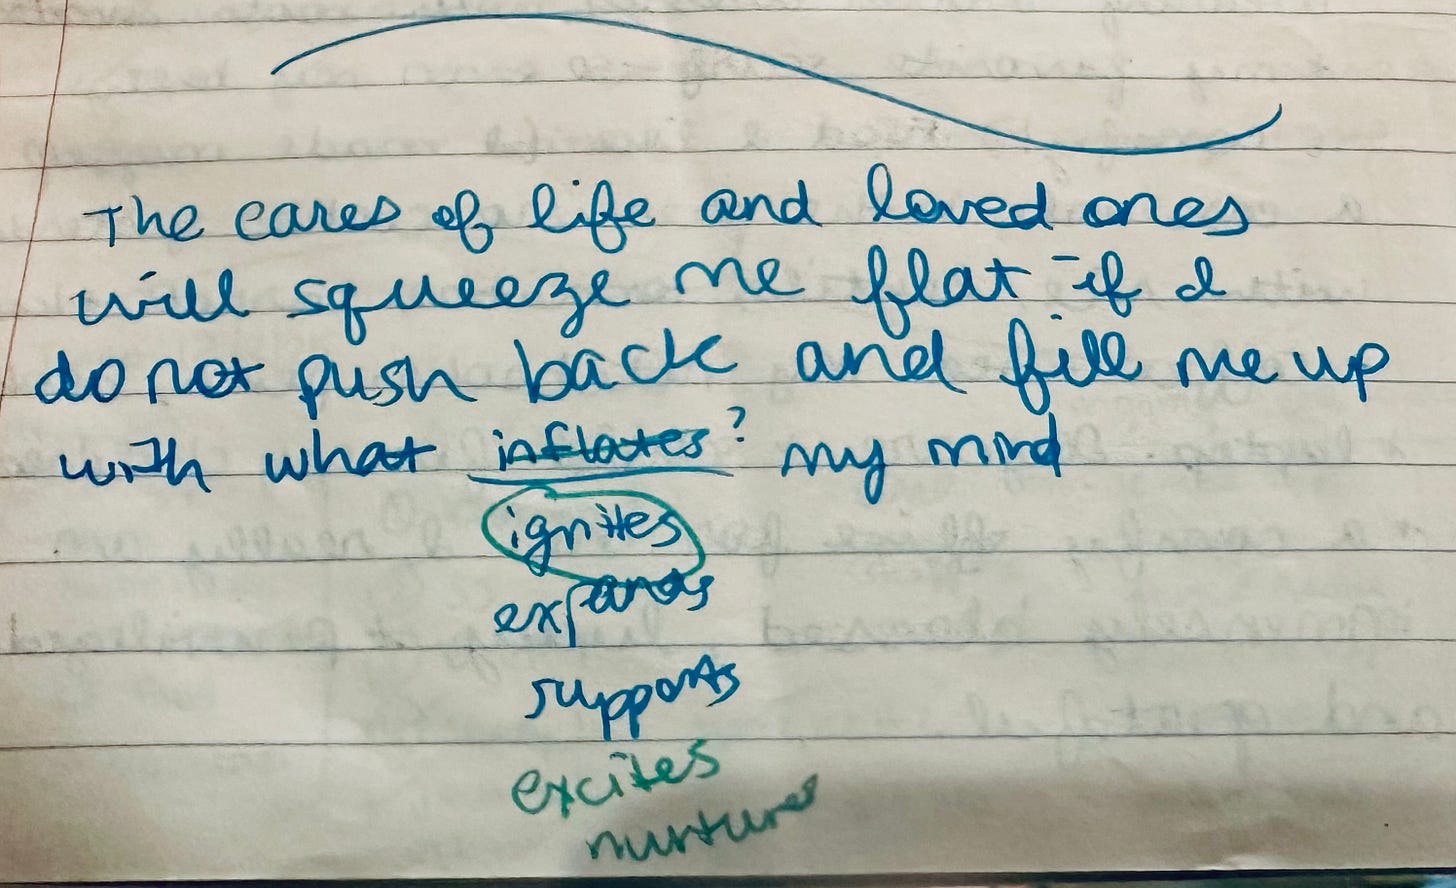 The cares of life and loved ones
will squeeze me flat if I
do not push back and fill me up
with what inflates? my mind
ignites
expands
supports
excites
nurtures